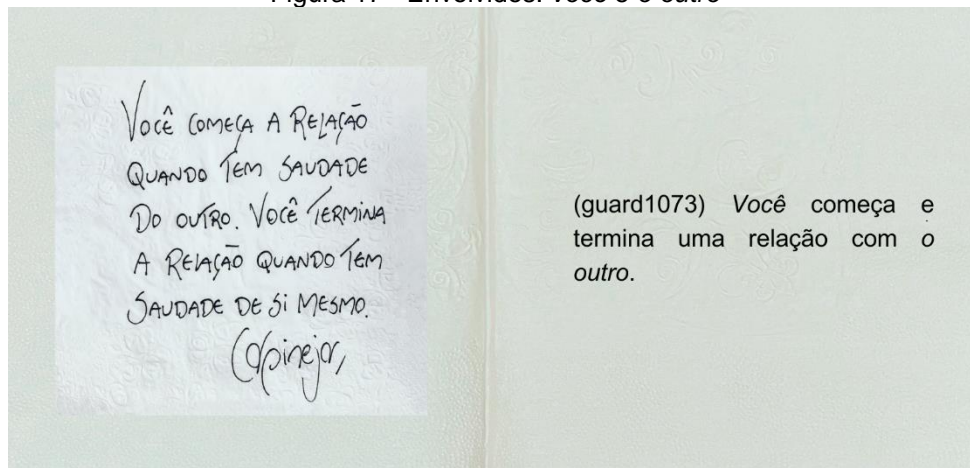 Figura 17 – Envolvidos: você e o outro
VOCÊ COMEÇA A RELAÇÃO
QUANDO TEM SAUDADE
DO OUTRO. VOCÊ TERMINA
A RELAÇÃO QUANDO TEM
SAUDADE DE SI MESMO.
Carpinejar,
(guard1073) Você começa e
termina uma relação com o
outro.